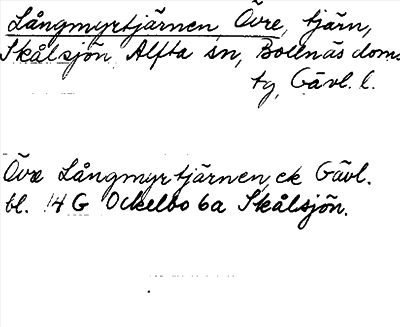 Långmyrtjärnen, Övre, tjärn,
Skålsjön Alfta sn, Bollnäs doms.
tg, Gävl. l.
Övre Långmyrtjärnen, ek Gävl.
bl. 14 G Ockelbo 6a Skålsjön.